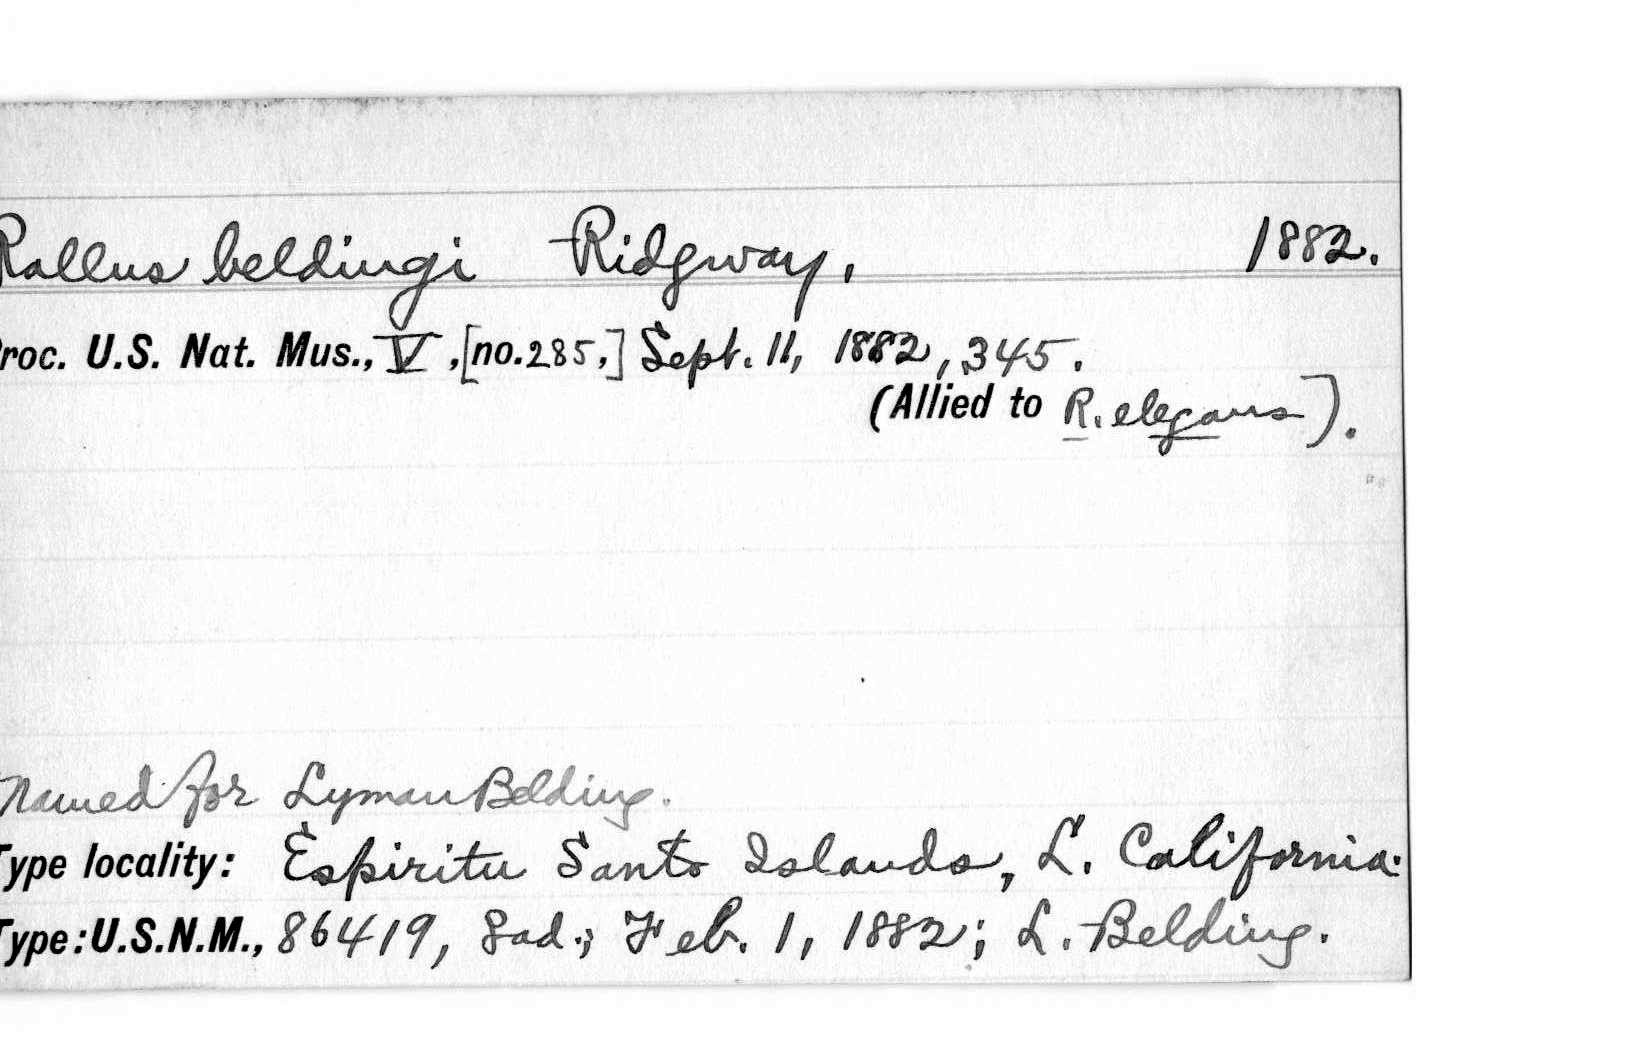 Rallus beldingi Ridgway, 1882.
Proc. U.S. Nat. Mus., V, [no. 285,] Sept. 11, 1882, 345.
(Allied to R. elegans).
Named for Lyman Belding.
Type locality: Espiritu Santo Islands, L. California.
Type: U.S.N.M., 86419, ad.; Feb. 1, 1882; L. Belding.